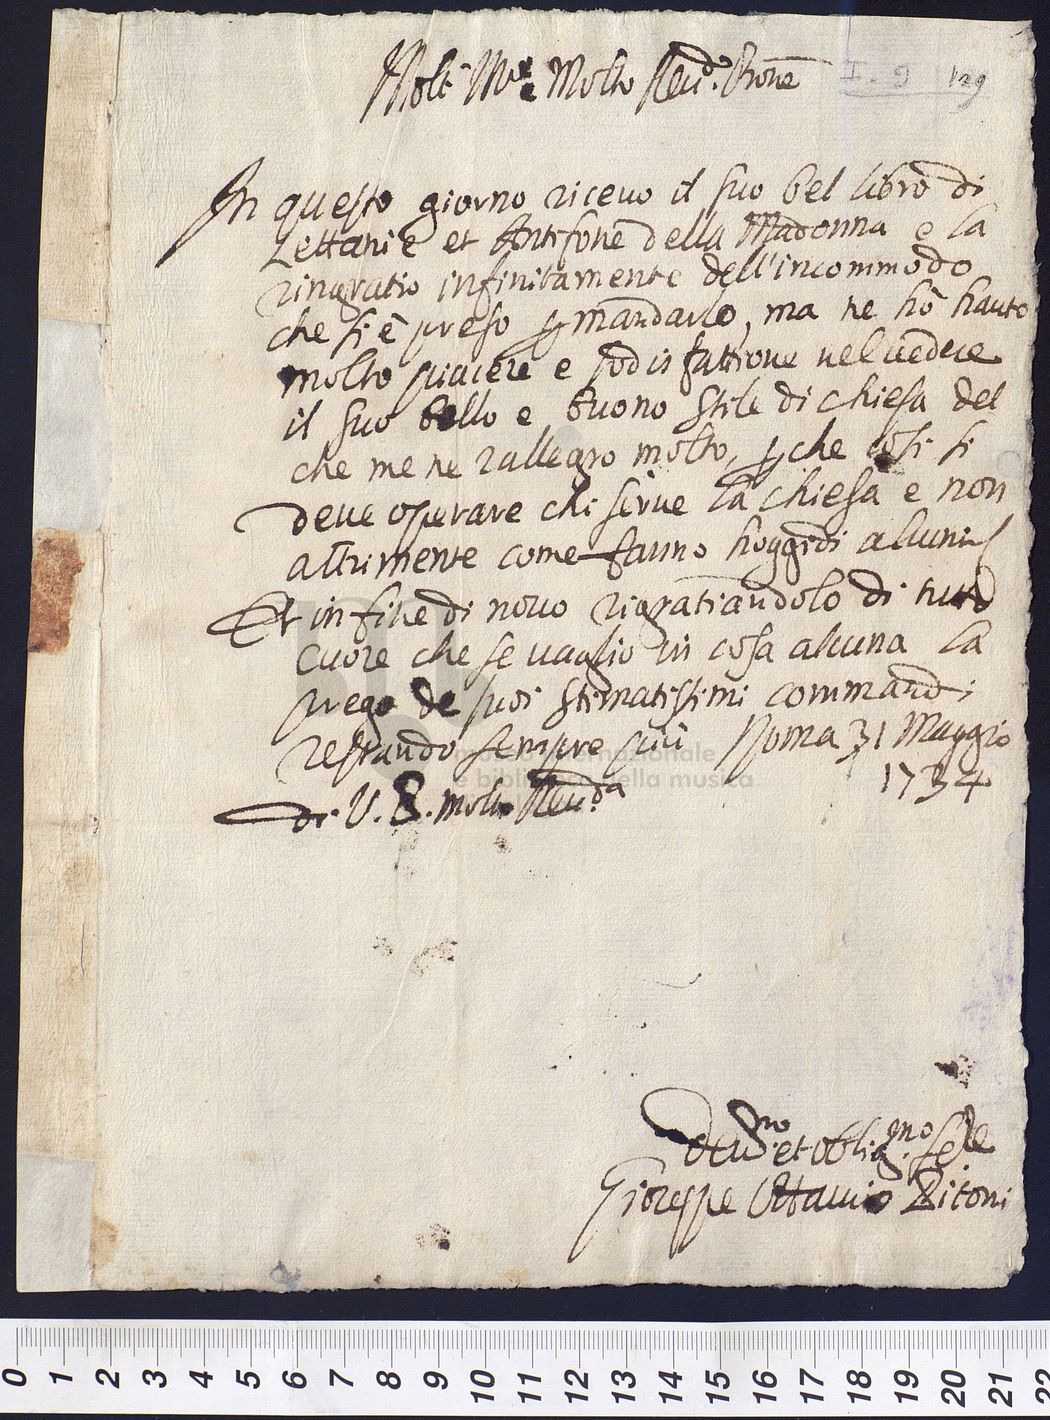 Molt Ill.re e Molto Rev.do P.rone
I. 9 129
In questo giorno ricevo il suo bel libro di
Lettanie et Antifone della Madonna e la
ringratio infinitamente dell'incommodo
che si è preso p mandarlo, ma ne hò hauto
molto piacere e sodisfattione nel vedere
il suo bello e buono stile di chiesa del
che me ne rallegro molto, p che cosi si
deve operare chi serve la chiesa e non
altrimente come fanno hoggidi alcuni
Et in fine di novo rigratiandolo di tutto
cuore che se vaglio in cosa alcuna la
prego de suoi stimatissimi commandi
restando sempre più Roma 31 Maggio
1734
di V. S. molto Rev.da
museo internazionale
e biblioteca della musica
Dev.mo et oblig.mo Se.re
Gioseppe Ottavio Pitoni
0 1 2 3 4 5 6 7 8 9 10 11 12 13 14 15 16 17 18 19 20 21 22